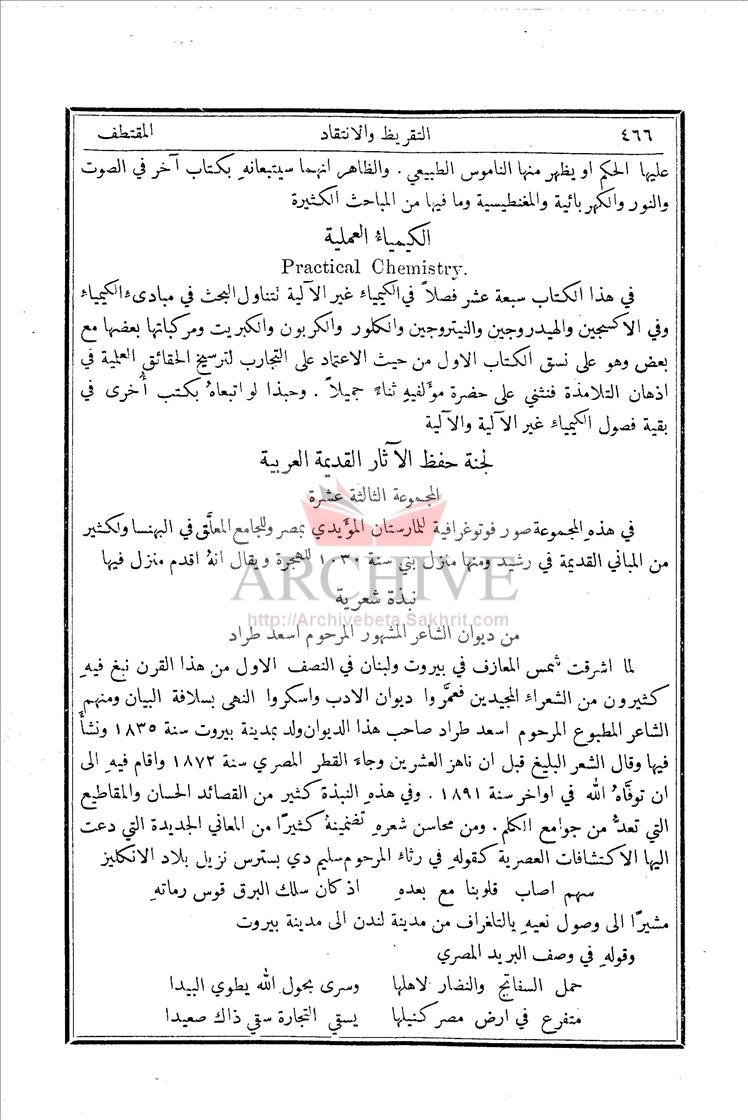 ٤٦٦ التقريظ والانتقاد المقتطف
عليها الحكم او يظهر منها الناموس الطبيعي . والظاهر انهما سيتبعانهِ بكتاب آخر في الصوت
والنور والكهربائية والمغنطيسية وما فيها من المباحث الكثيرة
الكيمياء العملية
Practical Chemistry.
في هذا الكتاب سبعة عشر فصلاً في الكيمياء غير الآلية لتناول البحث في مبادىء الكيمياء
وفي الاكسجين والهيدروجين والنيتروجين والكلور والكربون والكبريت ومركباتها بعضها مع
بعض وهو على نسق الكتاب الاول من حيث الاعتماد على التجارب لترسيخ الحقائق العلمية في
اذهان التلامذة فنثني على حضرة مؤلفيهِ ثناءً جميلاً . وحبذا لو اتبعاهُ بكتب أُخرى في
بقية فصول الكيمياء غير الآلية والآلية
لجنة حفظ الآثار القديمة العربية
المجموعة الثالثة عشرة
في هذهِ المجموعة صور فوتوغرافية للمارستان المؤَيدي بمصر وللجامع المعلَّق في البهنسا ولكثير
من المباني القديمة في رشيد ومنها منزل بني سنة ١٠٣٠ للهجرة ويقال انهُ اقدم منزل فيها
ARCHIVE
http://Archivebeta.Sakhrit.com
نبذة شعرية
من ديوان الشاعر المشهور المرحوم اسعد طراد
لما اشرقت شمس المعازف في بيروت ولبنان في النصف الاول من هذا القرن نبغ فيهِ
كثيرون من الشعراء المجيدين فعمَّروا ديوان الادب واسكروا النهى بسلافة البيان ومنهم
الشاعر المطبوع المرحوم اسعد طراد صاحب هذا الديوان ولد بمدينة بيروت سنة ١٨٣٥ ونشأَ
فيها وقال الشعر البليغ قبل ان ناهز العشرين وجاءَ القطر المصري سنة ١٨٧٢ واقام فيهِ الى
ان توفَّاهُ الله في اواخر سنة ١٨٩١ . وفي هذهِ النبذة كثير من القصائد الحسان والمقاطيع
التي تعدُّ من جوامع الكلم . ومن محاسن شعرهِ تضمينهُ كثيرًا من المعاني الجديدة التي دعت
اليها الاكتشافات العصرية كقولهِ في رثاء المرحوم سليم دي بسترس نزيل بلاد الانكليز
سهم اصاب قلوبنا مع بعدهِ اذ كان سلك البرق قوس رماتهِ
مشيرًا الى وصول نعيهِ بالتلغراف من مدينة لندن الى مدينة بيروت
وقولهِ في وصف البريد المصري
حمل السفاتج والنضار لاهلها وسرى بحول الله يطوي البيدا
متفرع في ارض مصر كنيلها يسقي التجارة سقي ذاك صعيدا